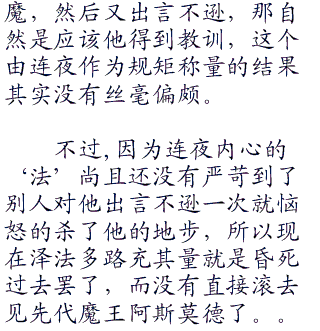 魔，然后又出言不逊，那自
然是应该他得到教训，这个
由连夜作为规矩称量的结果
其实没有丝毫偏颇。
不过,因为连夜内心的
‘法’尚且还没有严苛到了
别人对他出言不逊一次就恼
怒的杀了他的地步，所以现
在泽法多路充其量就是昏死
过去罢了，而没有直接滚去
见先代魔王阿斯莫德了。。